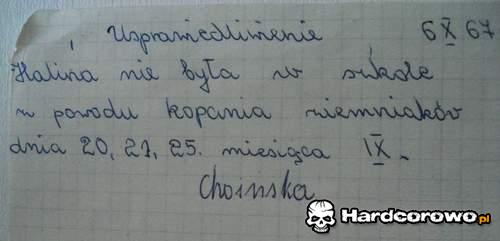 Uspramiedlimienie 6 X 67
Halina nie była w szkole
z powodu kopania ziemniaków
dnia 20, 21, 25. miesiąca IX.
Choinska
Hardcorowo.pl